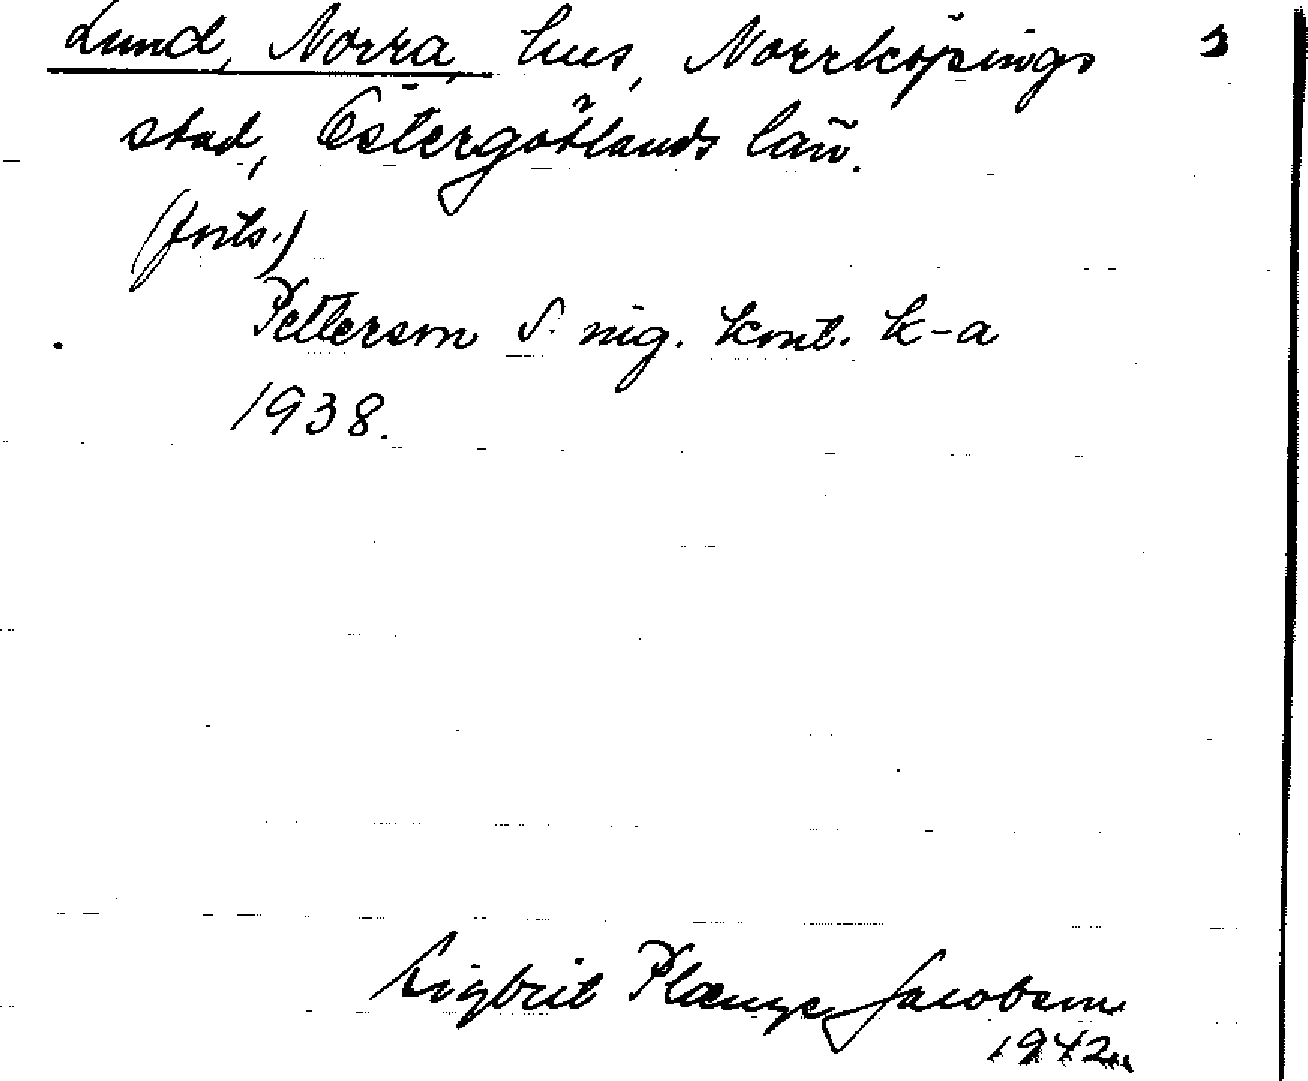 Lund, Norra, hus, Norrköpings
stad, Östergötlands län.
(forts.)
Petterson S. ing. kont. k-a
1938.
Sigbrit Plænge Jacobson
1942